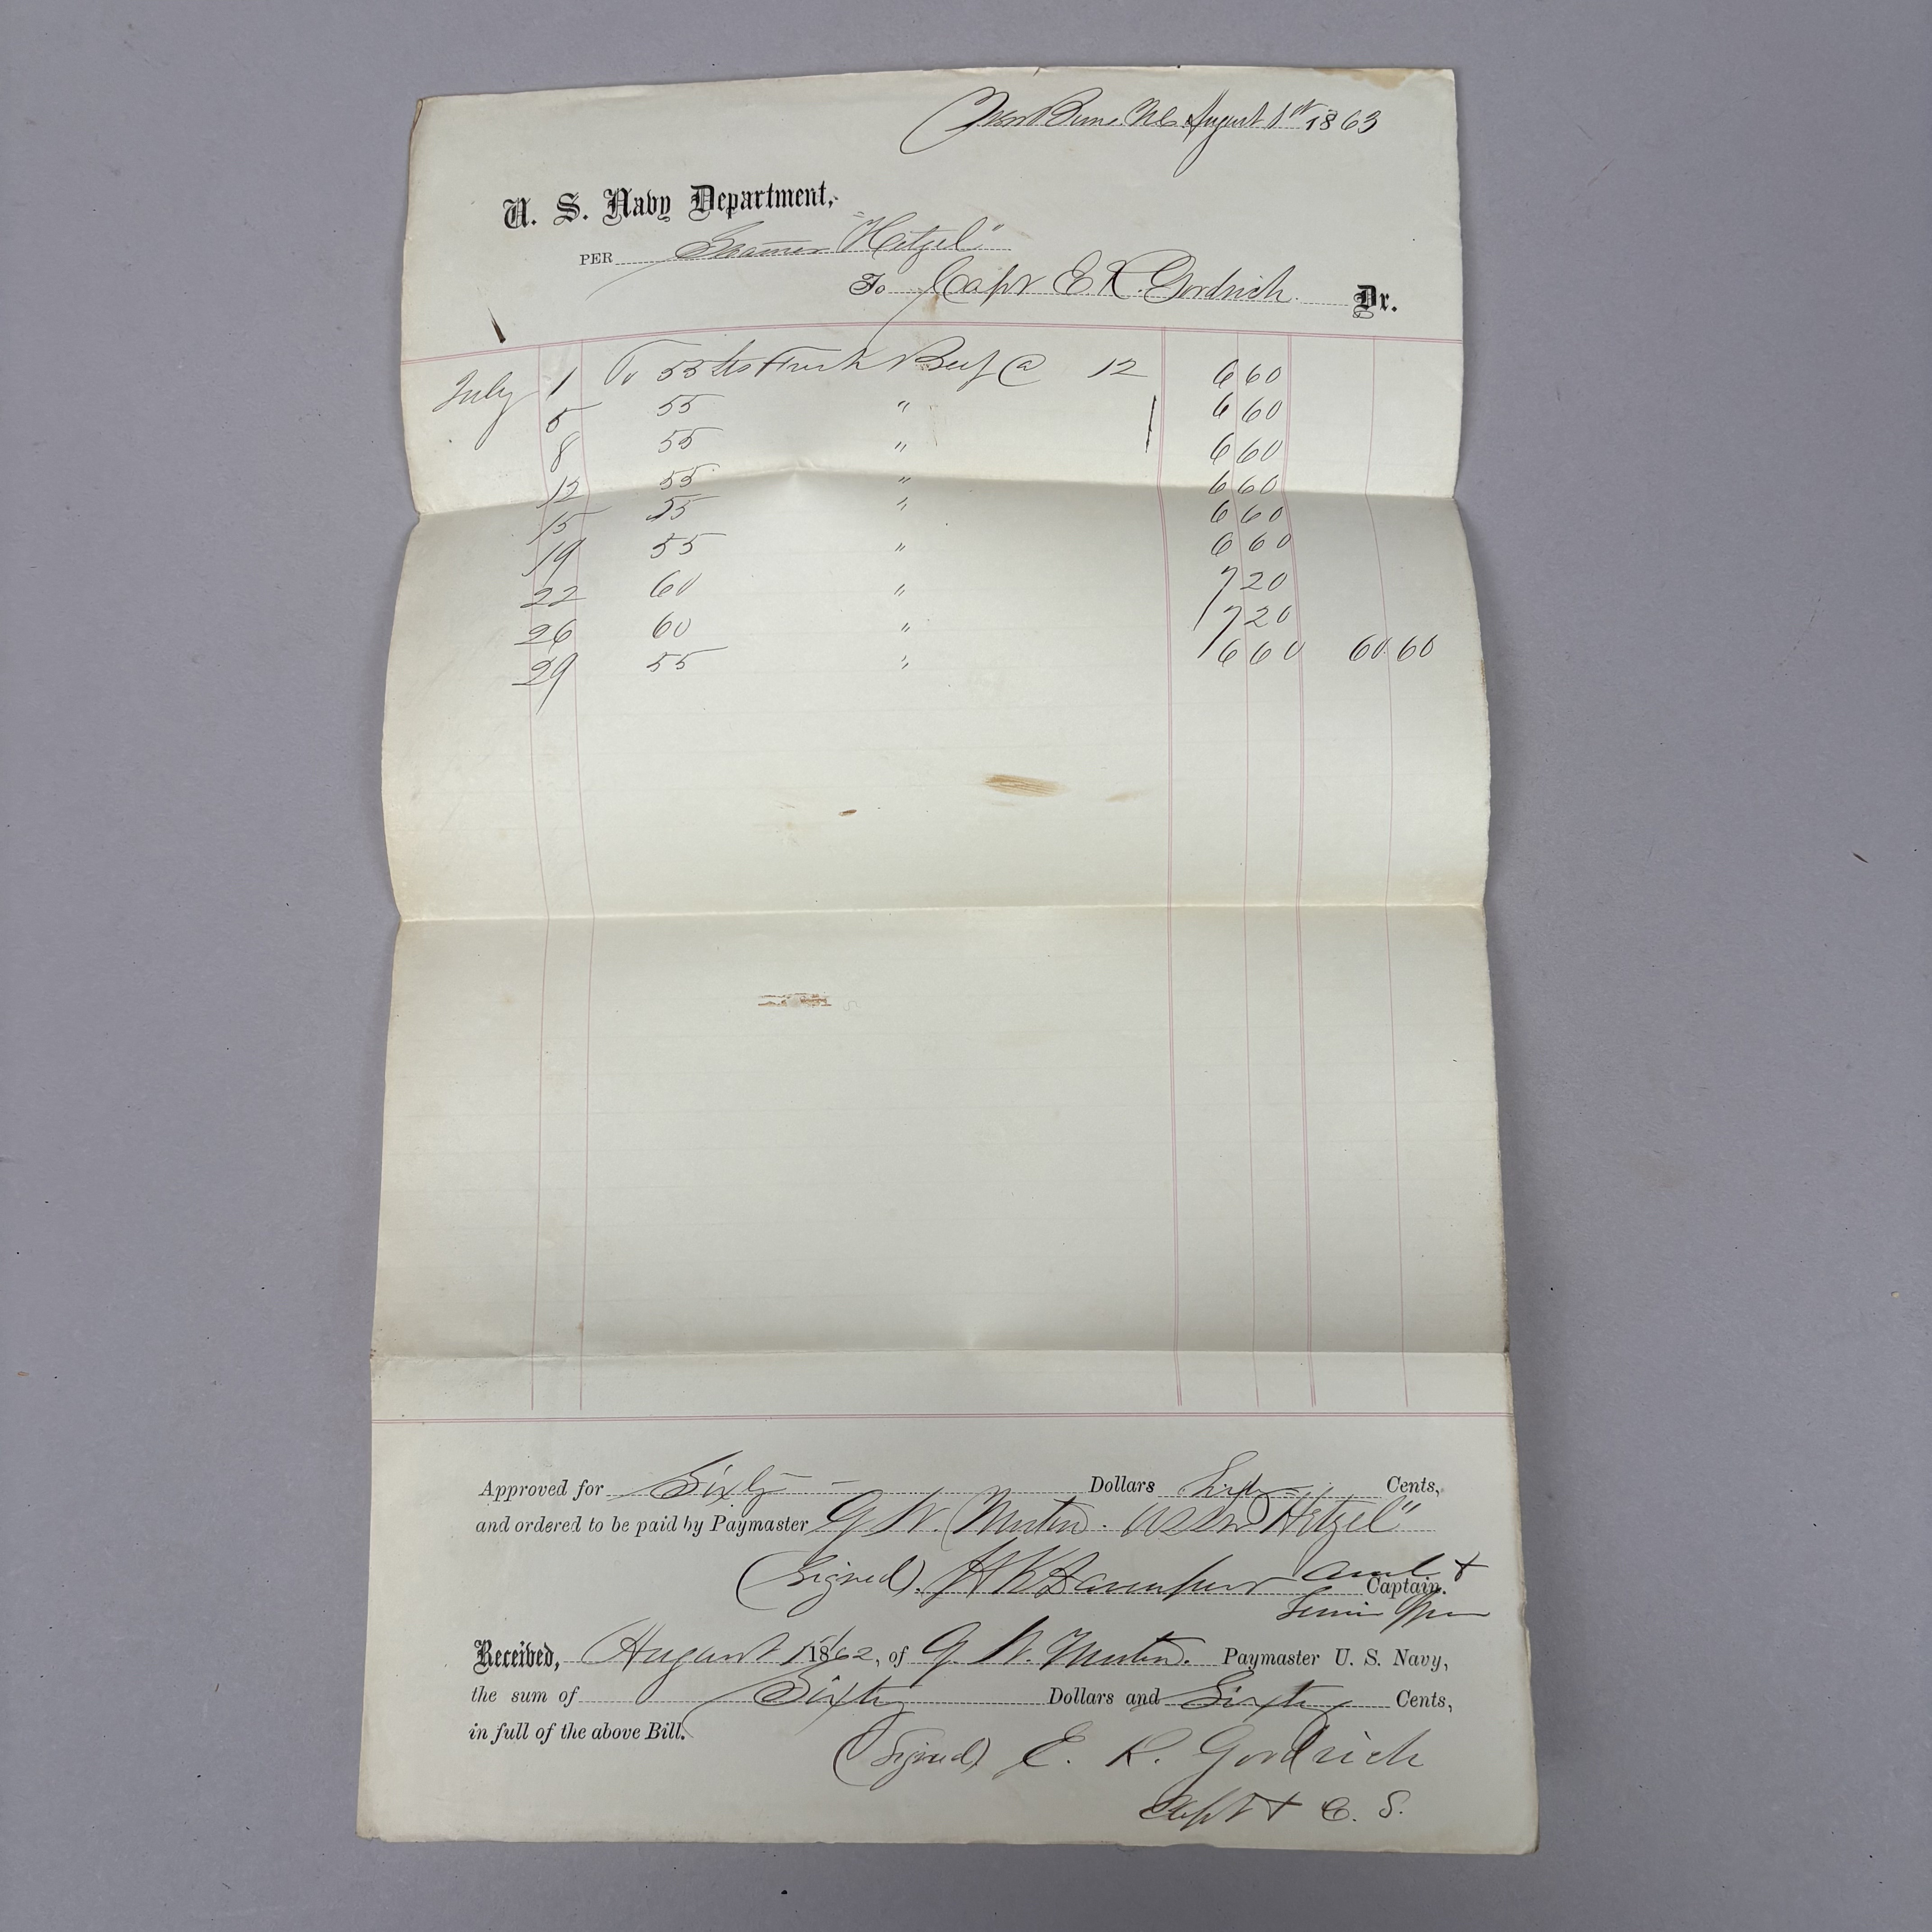 New Berne N.C. August 1st 1863
U. S. Navy Department,
PER Steamer "Hetzel"
To Capt E. R. Goodrich Dr.
July 1 To 55 lbs Fresh Beef @ 12 6 60
5 55 " 6 60
8 55 " 6 60
12 55 " 6 60
15 55 " 6 60
19 55 " 6 60
22 60 " 7 20
26 60 " 7 20
29 55 " 6 60 60 60
Approved for Sixty Dollars Sixty Cents,
and ordered to be paid by Paymaster G. W. "Hetzel"
(Signed). H K Davenport Comd &
Captain.
Senior
Received, August 1st 1862, of G. W. Paymaster U. S. Navy,
the sum of Sixty Dollars and Sixty Cents,
in full of the above Bill.
(Signed) E. R. Goodrich
Capt & C. S.